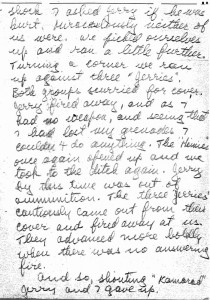 shock I asked Jerry if he was
hurt, miraculously neither of
us were. We picked ourselves
up and ran a little further.
Turning a corner we ran
up against three "Jerries".
Both groups scurried for cover.
Jerry fired away, and as I
had no weapon, and seeing that
I had lost my grenades I
couldn't do anything. The Heinies
once again opened up and we
took to the ditch again. Jerry
by this time was out of
ammunition. The three Jerries
cautiously came out from their
cover and fired away at us.
They advanced more boldly
when there was no answering
fire.
And so, shouting "Kamerad"
Jerry and I gave up.